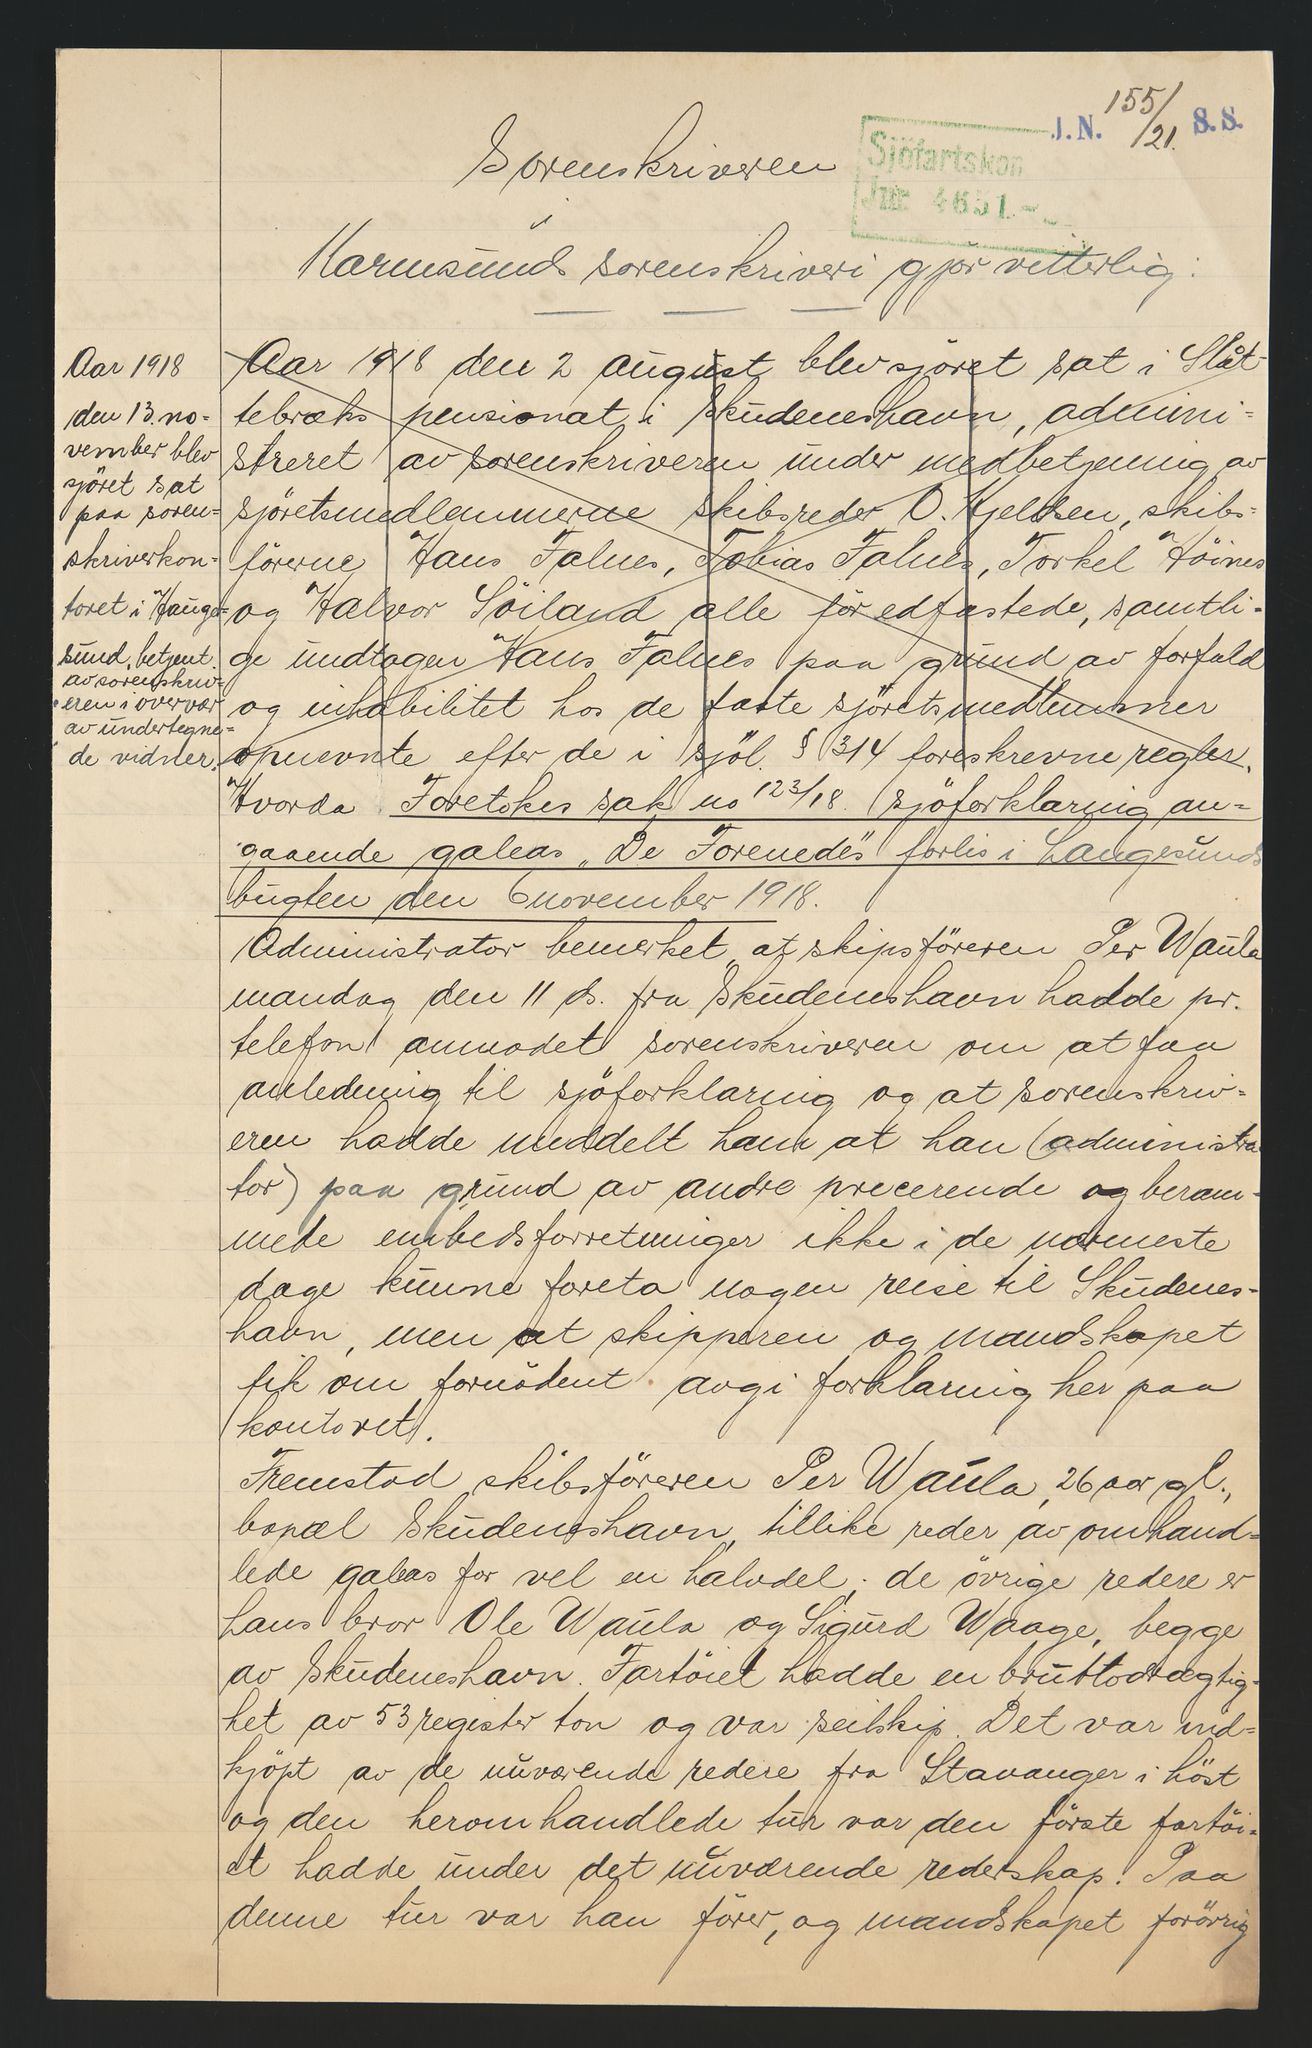 J.N. 155/21. S.S.
Sjöfartskon
Jnr 4651.-
Sorenskriveren
i
Karmsunds sorenskriveri gjör vitterlig:
Aar 1918
den 13. no-
vember blev
sjöret sat
paa soren-
skriverkon-
toret i Hauge-
sund, betjent
av sorenskriv-
eren i overvær
av undertegne-
de vidner.
Aar 1918 den 2 august blev sjöret sat i Slåt-
tebræks pensionat i Skudeneshavn, admini-
streret av sorenskriveren under medbetjening av
sjöretsmedlemmerne skibsreder O. Kjeldsen, skibs-
förerne Hans Falnes, Tobias Falnes, Torkel Höines
og Halvor Söiland alle för edfæstede, samtli-
ge undtagen Hans Falnes paa grund av forfald
og inhabilitet hos de faste sjöretsmedlemmer
opnevnte efter de i sjöl. § 314 foreskrevne regler.
Hvorda Foretokes sak no 123/18. (sjöforklaring an-
gaaende galeas "De Forenede"s forlis i Langesunds
bugten den 6 november 1918.
Administrator bemerket, at skipsföreren Per Waula
mandag den 11 ds. fra Skudeneshavn hadde pr.
telefon anmodet sorenskriveren om at faa
anledning til sjöforklaring og at sorenskriv-
eren hadde meddelt ham at han (administra
tor) paa grund av andre precerende og beram-
mede embedsforretninger ikke i de nærmeste
dage kunne foreta nogen reise til Skudenes-
havn, men at skipperen og mandskapet
fik om fornödent avgi forklaring her paa
kontoret.
Fremstod skibsföreren Per Waula, 26 aar gl.,
bopæl Skudeneshavn, tillike reder av omhand-
lede galeas for vel en halvdel; de övrige redere er
hans bror Ole Waula og Sigurd Waage, begge
av Skudeneshavn. Fartöiet hadde en bruttodrægtig-
het av 53 register ton og var seilskip. Det var ind-
kjöpt av de nuværende redere fra Stavanger i höst
og den heromhandlede tur var den förste fartöi-
et hadde under det nuværende rederskap. Paa
denne tur var han förer, og mandskapet forövrig